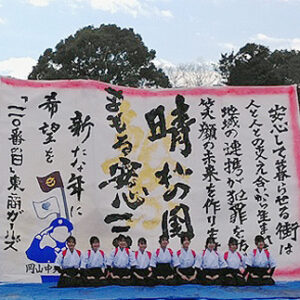 安心して暮らせる街は
人と人との支え合いから生まれ
地域の連携が犯罪を防ぎ
笑顔の未来を作ります
晴れの国
まもる安心
新たな年に
希望を
一一〇番の日東商ガールズ
岡山中央